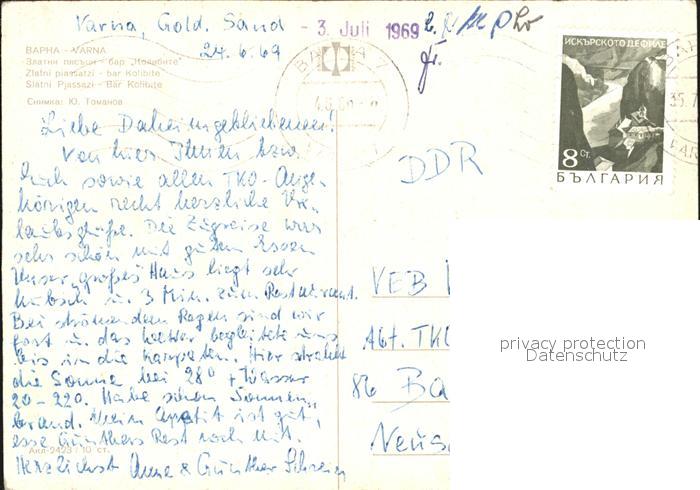 Varna, Gold. Sand
24.6.69
- 3. Juli 1969
ВАРНА - VARNA
Златни пясъци - бар „Колибите"
Zlatni piassatzi - bar Kolibite
Slatni Pjassazi - Bar Kolibite
Снимка: Ю. Томанов
ИСКЪРСКОТО ДЕФИЛЕ
8 СТ.
БЪЛГАРИЯ
Liebe Daheimgebliebenen!
Von hier Ihnen bzw.
Euch sowie allen TKO-Ange-
hörigen recht herzliche Ur-
laubsgrüße. Die Zugreise war
sehr schön mit gutem Essen
Unser großes Haus liegt sehr
hübsch u. 3 Min. zum Restaurant.
Bei strömendem Regen sind wir
fort u. das Wetter begleitete uns
bis in die Karpaten. Hier strahlt
die Sonne bei 28° + Wasser
20-220. Habe schon Sonnen-
brand. Mein Apetit ist gut,
esse Günthers Rest noch mit.
Herzlichst Anna & Günther
Акл-2423 / 10 ст.
DDR
VEB
Abt. TKO
86 Ba
Neus
privacy protection
Datenschutz